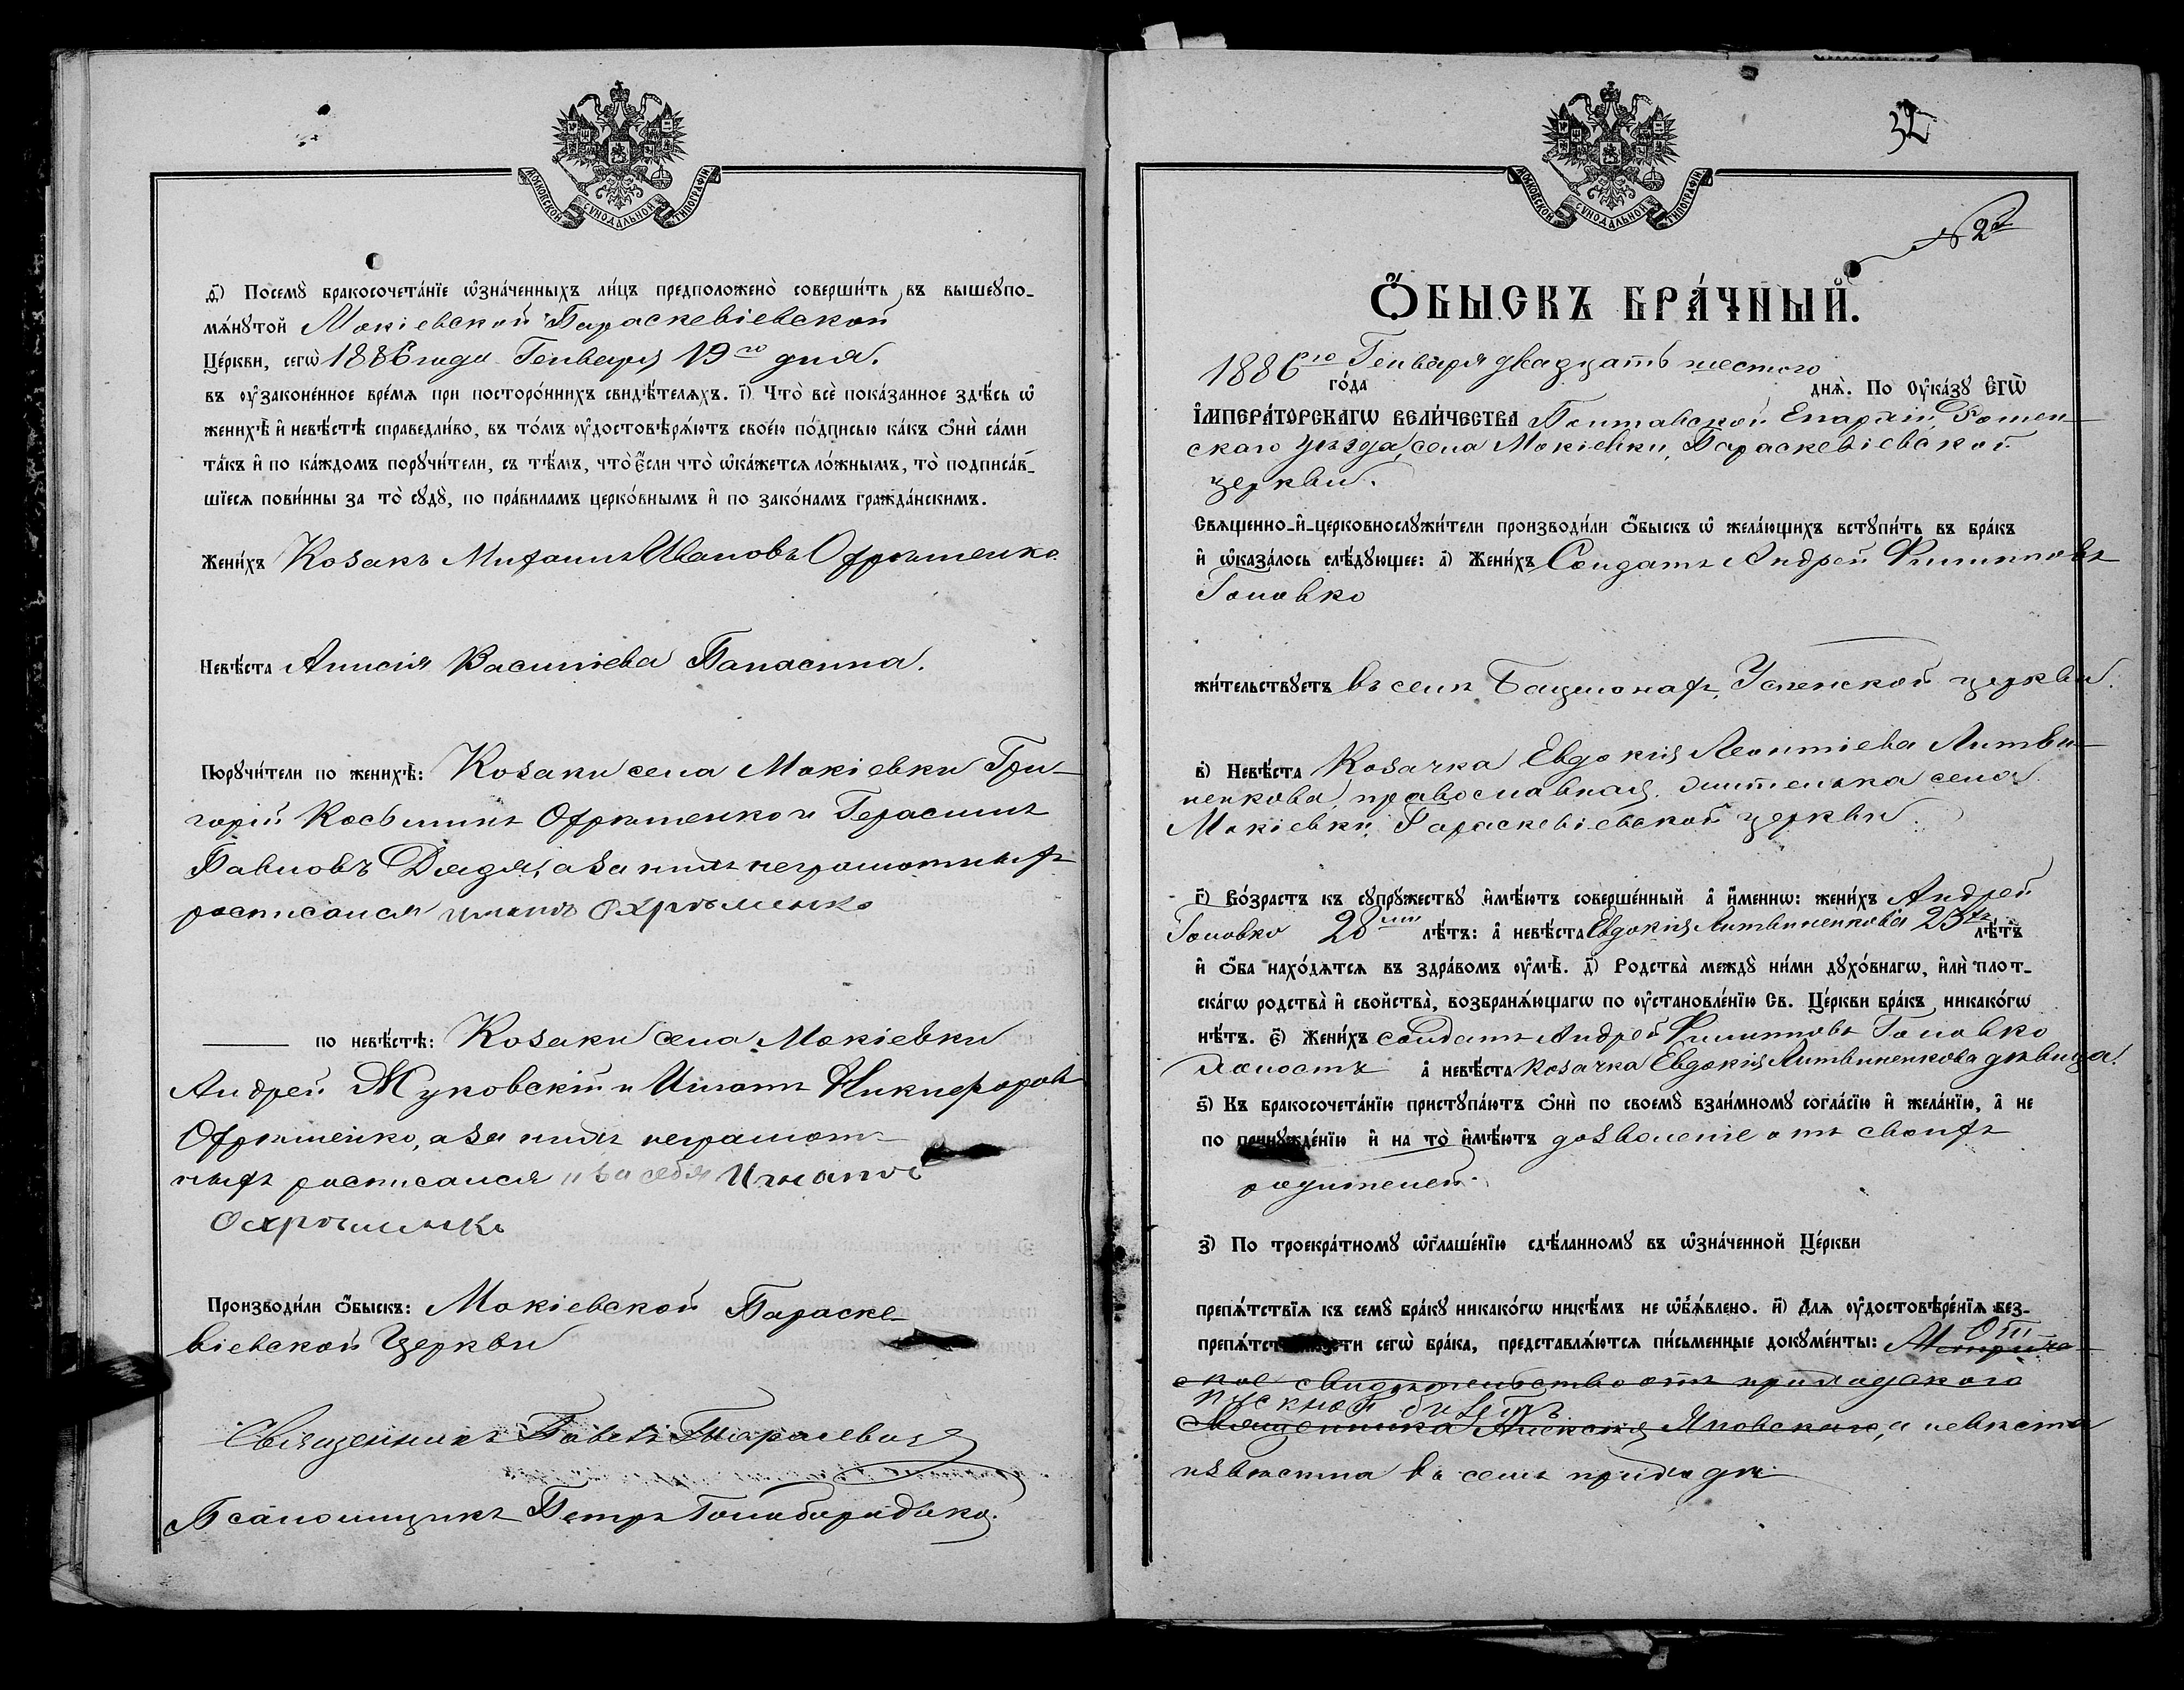 МОСКОВСКОЙ СѴНОДАЛЬНОЙ ТИПОГРАФІИ
ѳ҃) Посемꙋ̀ бракосочета́нїе ѡ҆зна́ченныхъ ли́цъ предположено̀ соверши́ть въ вышеꙋпо-
мѧ́нꙋтой Мокіевской Параскевіевской
Це́ркви, сегѡ̀ 1886 года Генваря 19го дня.
въ ᲂу҆зако́ненное вре́мѧ при посторо́ннихъ свидѣ́телѧхъ. і҃) Что̀ всѐ пока́занное здѣ́сь ѡ҆
женихѣ̀ и҆ невѣ́стѣ справедли́во, въ то́мъ ᲂу҆достовѣрѧ́ютъ свое́ю по́дписью ка́къ ѻ҆нѝ са́ми
та́къ и҆ по ка́ждомъ порꙋчи́тели, съ тѣ́мъ, что̀ є҆́сли что̀ ѡ҆ка́жетсѧ ло́жнымъ, то̀ подписа́в-
шїесѧ пови́нны за то̀ сꙋдꙋ̀, по пра́виламъ церко́внымъ и҆ по зако́намъ гражда́нскимъ.
Жени́хъ Козакъ Михаилъ Ивановъ Охрѣменко
Невѣ́ста Анисія Василіева Панасина.
Порꙋчи́тели по женихѣ̀: Козаки села Мокіевки Гри-
горій Косьминъ Охрѣменко и Герасимъ
Павловъ Дзядзя, а за нихъ неграмотныхъ
росписался Игнатъ Охрѣменко
по невѣ́стѣ: Козаки села Мокіевки
Андрей Жуковскій и Игнатъ Никифоровъ
Охрѣменко, а за нихъ неграмот-
ныхъ росписался и за себя Игнатъ
Охрѣменко
Производи́ли ѻ҆́быскъ: Мокіевской Параске-
віевской Церкви
Священникъ Павелъ
Псаломщикъ Петръ Голобородько.
МОСКОВСКОЙ СѴНОДАЛЬНОЙ ТИПОГРАФІИ
32
№ 2й
Ѻ҆́БЫСКЪ БРА́ЧНЫЙ.
1886го го́да Генваря двадцать шестого днѧ̀. По ᲂу҆ка́зꙋ є҆гѡ̀
і҆мпера́торскагѡ вели́чества Полтавской Епархіи, Ромен-
скаго уѣзда, села Мокіевки, Параскевіевской
церкви.
Свѧщенно-и҆-церковнослꙋжи́тели производи́ли ѻ҆́быскъ ѡ҆ жела́ющихъ встꙋпи́ть въ бра́къ
и҆ ѡ҆каза́лось слѣ́дꙋющее: а҃) Жени́хъ Солдатъ Андрей Филипповъ
Головко
жи́тельствꙋетъ въ селѣ Бацманахъ, Успенской церкви.
в҃) Невѣ́ста Козачка Евдокія Леонтіева Литви-
ненкова, православная, жителька села
Мокіевки, Параскевіевской церкви.
г҃) Во́зрастъ къ сꙋпрꙋ́жествꙋ и҆мѣ́ютъ соверше́нный а҆ и҆́меннѡ: жени́хъ Андрей
Головко 28ми лѣ́тъ: а҆ невѣ́ста Евдокія Литвиненкова 23хъ лѣ́тъ
и҆ ѻ҆́ба нахо́дѧтсѧ въ здра́вомъ ᲂу҆мѣ̀. д҃) Родства̀ междꙋ̀ ни́ми дꙋхо́внагѡ, и҆лѝ плот-
ска́гѡ родства̀ и҆ свойства̀, возбранѧ́ющагѡ по ᲂу҆становле́нїю Св. Це́ркви бра́къ никако́гѡ
нѣ́тъ. є҃) Жени́хъ солдатъ Андрей Филипповъ Головко
холостъ а҆ невѣ́ста козачка Евдокія Литвиненкова дѣвица.
ѕ҃) Къ бракосочета́нїю пристꙋпа́ютъ ѻ҆нѝ по своемꙋ̀ взаи́мномꙋ согла́сїю и҆ жела́нїю, а҆ не
по принꙋжде́нїю и҆ на то̀ и҆мѣ́ютъ дозволеніе отъ своихъ
родителей.
з҃) По троекра́тномꙋ ѡ҆глаше́нїю сдѣ́ланномꙋ въ ѡ҆зна́ченной Це́ркви
препѧ́тствїѧ къ семꙋ̀ бра́кꙋ никако́гѡ никѣ́мъ не ѡ҆б̾ѧ́влено. и҃) Длѧ ᲂу҆достовѣре́нїѧ без-
препѧ́тственности сегѡ̀ бра́ка, представлѧ́ютсѧ пи́сьменные докꙋме́нты: Метриче- От-
ское свидѣтельство отъ приходскаго
пускной билетъ
священника Алексія Яновскаго, а невѣста
извѣстна въ семъ приходѣ